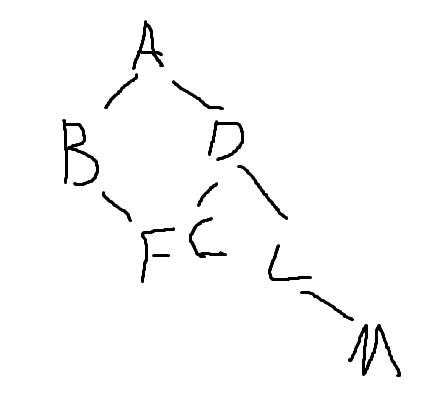 A
B D
F C L
M